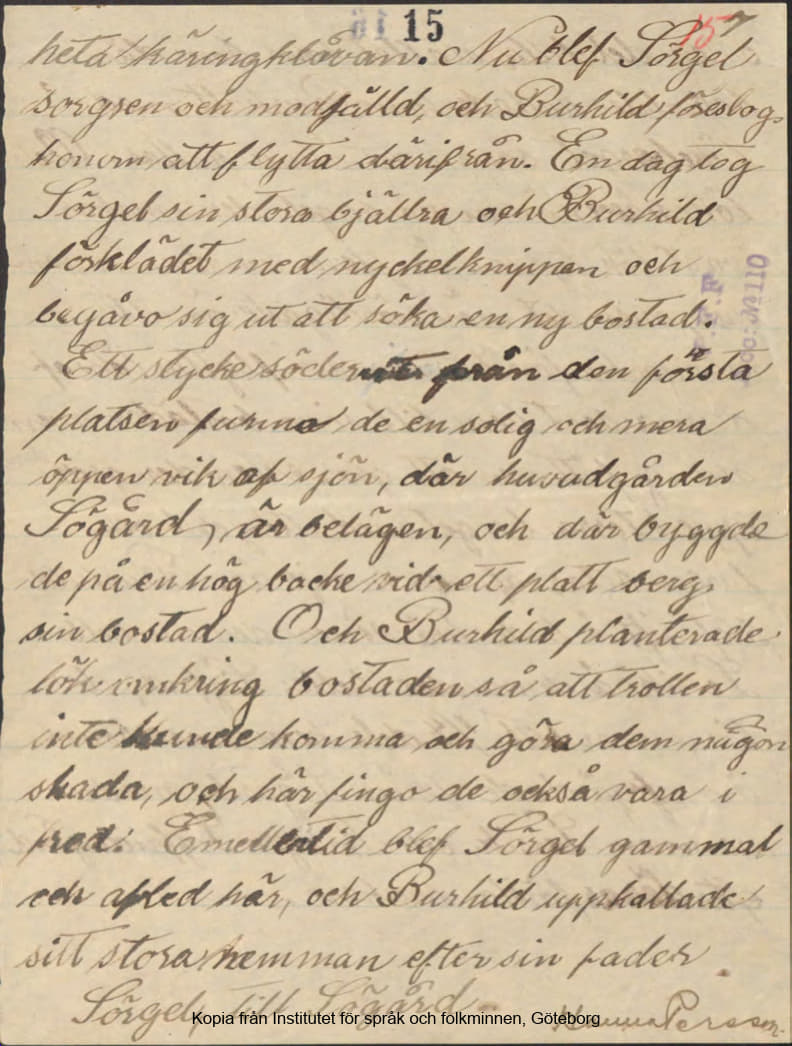 15
157
heta käringklåvan. Nu blef Sörgel
sorgsen och modfälld, och Burhild föreslog
honom att flytta därifrån. En dag tog
Sörgel sin stora bjällra och Burhild
förklädet med nyckelknippan och
begåvo sig ut att söka en ny bostad.
Ett stycke söderut från den första
platsen funno de en solig och mera
öppen vik af sjön, där huvudgården
Sögård, är belägen, och där byggde
de på en hög backe vid ett platt berg
sin bostad. Och Burhild planterade
lök omkring bostaden så att trollen
inte kunde komma och göra dem någon
skada, och här fingo de också vara i
fred. Emellertid blef Sörgel gammal
och afled här, och Burhild uppkallade
sitt stora hemman efter sin fader
Sörgel, till Sögård.
Persson
V.F.F
Acc: M 110
Kopia från Institutet för språk och folkminnen, Göteborg